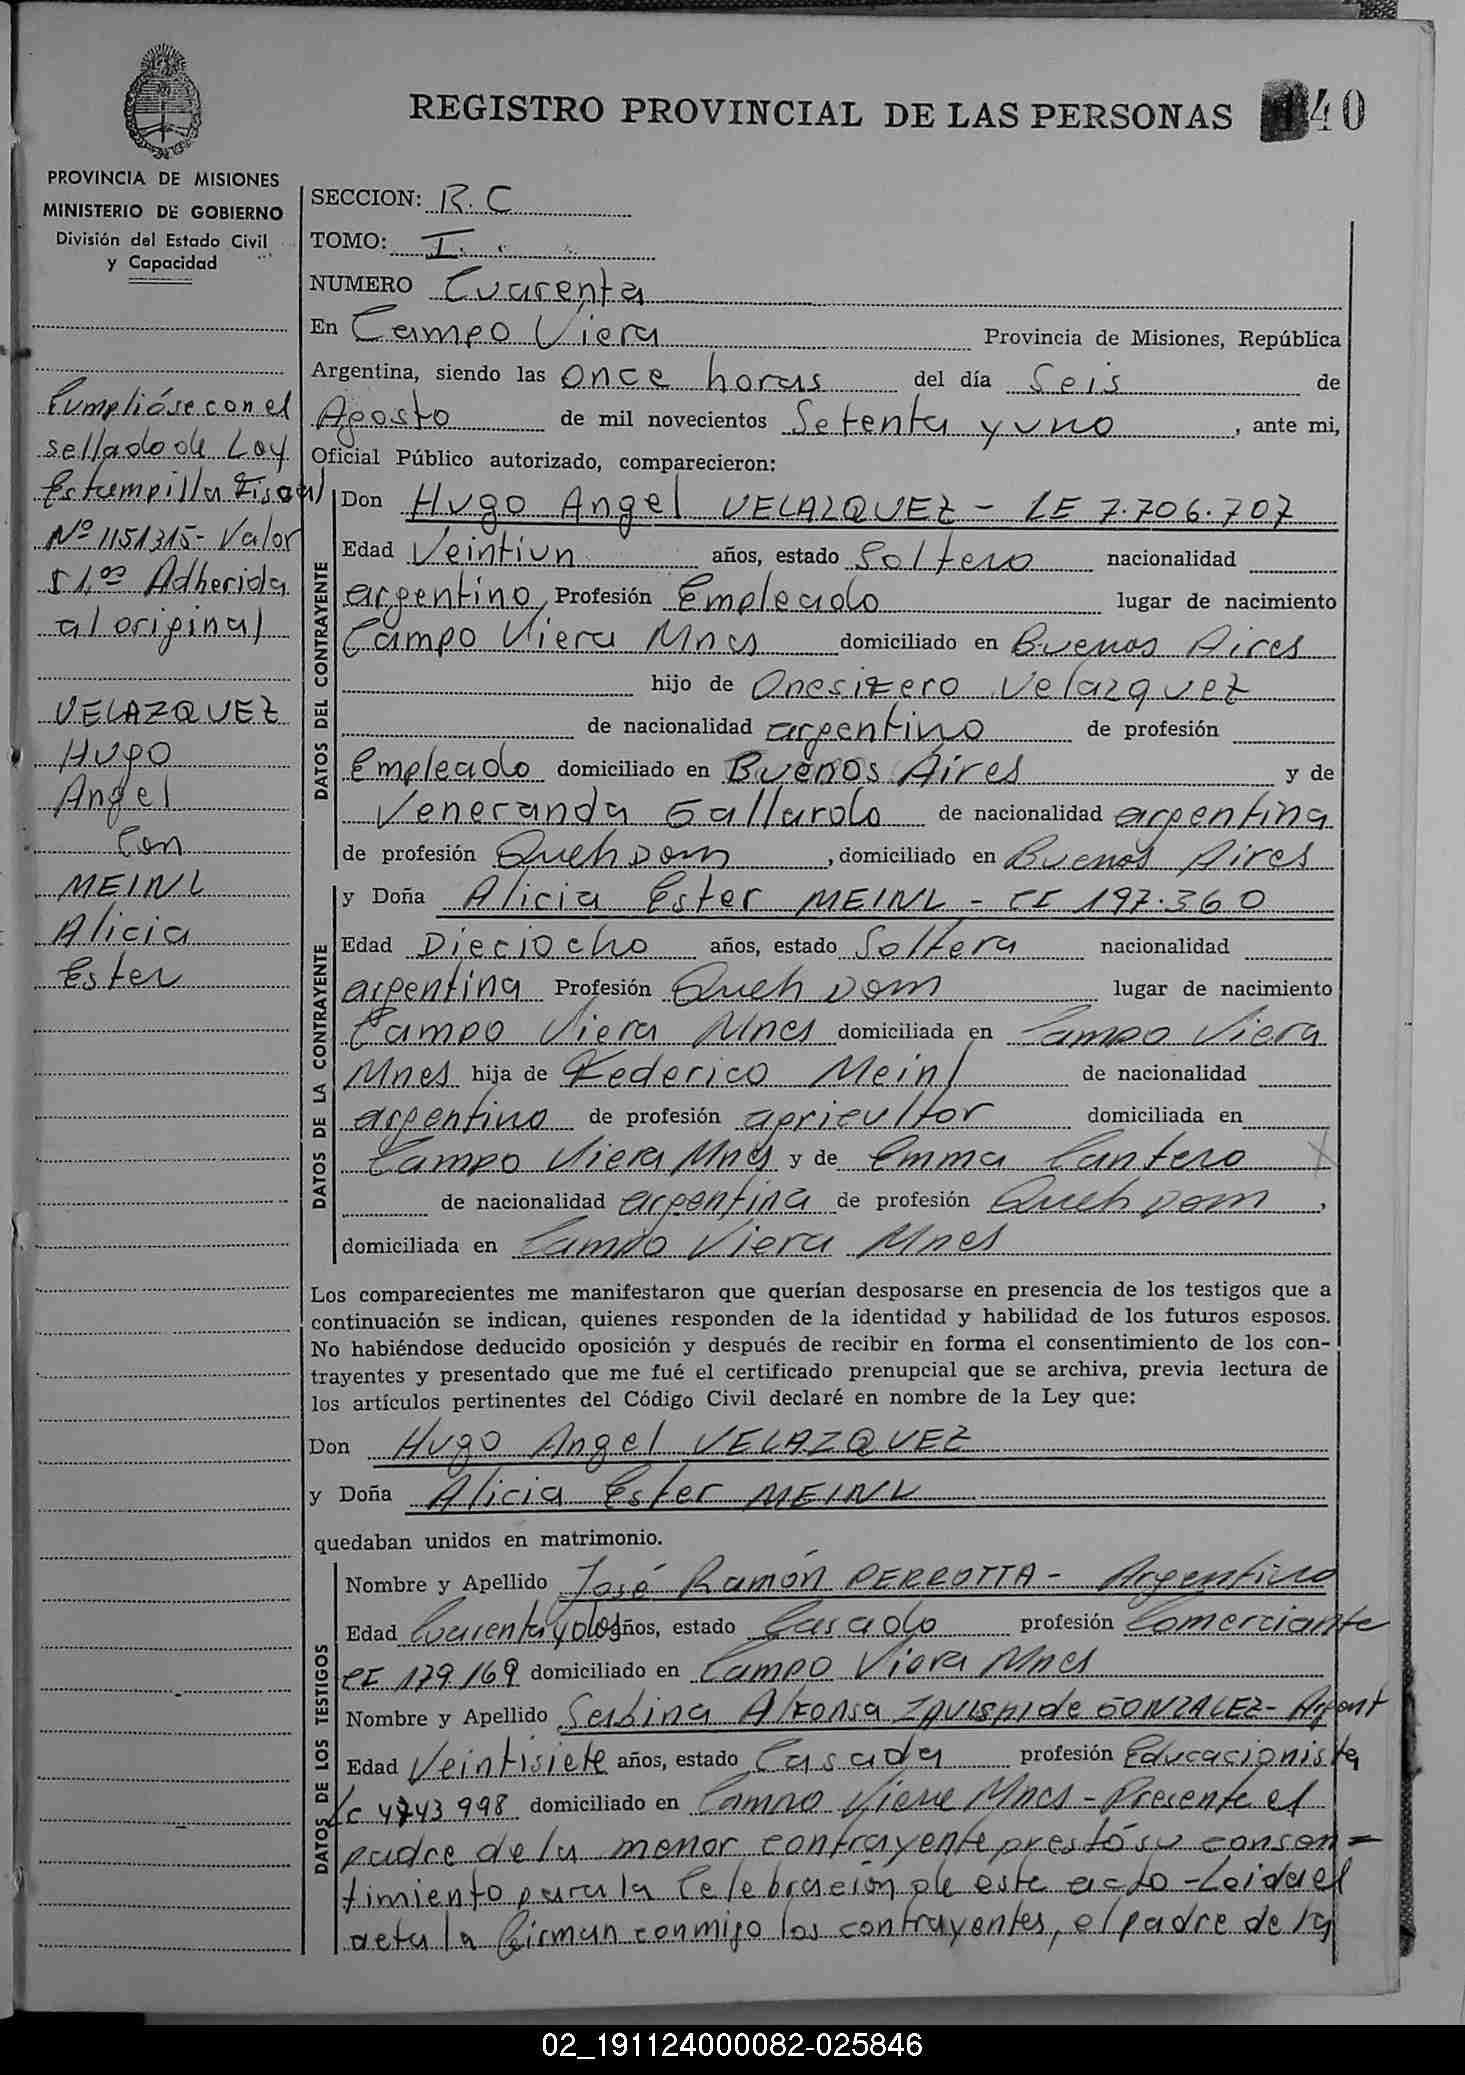 REGISTRO PROVINCIAL DE LAS PERSONAS 140
PROVINCIA DE MISIONES
MINISTERIO DE GOBIERNO
División del Estado Civil
y Capacidad
Cumplióse con el
sellado de Ley
Estampilla Fiscal
Nº 1151315- Valor
$ 1,00 Adherida
al original
VELAZQUEZ
Hugo
Angel
Con
MEINL
Alicia
Ester
SECCION: R.C
TOMO: I
NUMERO Cuarenta
En Campo Viera Provincia de Misiones, República
Argentina, siendo las once horas del día Seis de
Agosto de mil novecientos Setenta y uno, ante mi,
Oficial Público autorizado, comparecieron:
DATOS DEL CONTRAYENTE
Don Hugo Angel VELAZQUEZ - LE 7.706.707
Edad Veintiun años, estado Soltero nacionalidad
argentino, Profesión Empleado lugar de nacimiento
Campo Viera Mnes domiciliado en Buenos Aires
hijo de Onesifero Velazquez
de nacionalidad argentino de profesión
Empleado domiciliado en Buenos Aires y de
Veneranda Gallardo de nacionalidad argentina
de profesión Queh Dom, domiciliado en Buenos Aires
DATOS DE LA CONTRAYENTE
y Doña Alicia Ester MEINL - CI 197.360
Edad Dieciocho años, estado Soltera nacionalidad
argentina Profesión Queh Dom lugar de nacimiento
Campo Viera Mnes domiciliada en Campo Viera
Mnes hija de Federico Meinl de nacionalidad
argentino de profesión agricultor domiciliada en
Campo Viera Mnes y de Emma Cantero
de nacionalidad argentina de profesión Queh Dom,
domiciliada en Campo Viera Mnes
Los comparecientes me manifestaron que querían desposarse en presencia de los testigos que a
continuación se indican, quienes responden de la identidad y habilidad de los futuros esposos.
No habiéndose deducido oposición y después de recibir en forma el consentimiento de los con-
trayentes y presentado que me fué el certificado prenupcial que se archiva, previa lectura de
los artículos pertinentes del Código Civil declaré en nombre de la Ley que:
Don Hugo Angel VELAZQUEZ
y Doña Alicia Ester MEINL
quedaban unidos en matrimonio.
DATOS DE LOS TESTIGOS
Nombre y Apellido José Ramón PERROTTA - Argentino
Edad Cuarenta y dos años, estado Casado profesión Comerciante
CI 179169 domiciliado en Campo Viera Mnes
Nombre y Apellido Serbina Alfonsa de GONZALEZ - Argent
Edad Veintisiete años, estado Casada profesión Educacionista
LC 4743998 domiciliado en Campo Viera Mnes - Presente el
padre de la menor contrayente prestó su consen=
timiento para la Celebración de este acto - Leida el
acta la firman conmigo los contrayentes, el padre de la
02_191124000082-025846